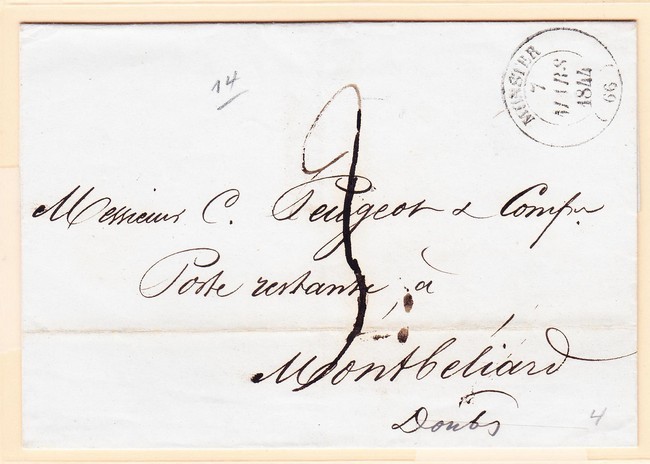 14
MUNSTER
7
MARS
1844
(66)
3
Messieurs C. Peugeot & Comp.
Poste restante à
Montbéliard
Doubs
4